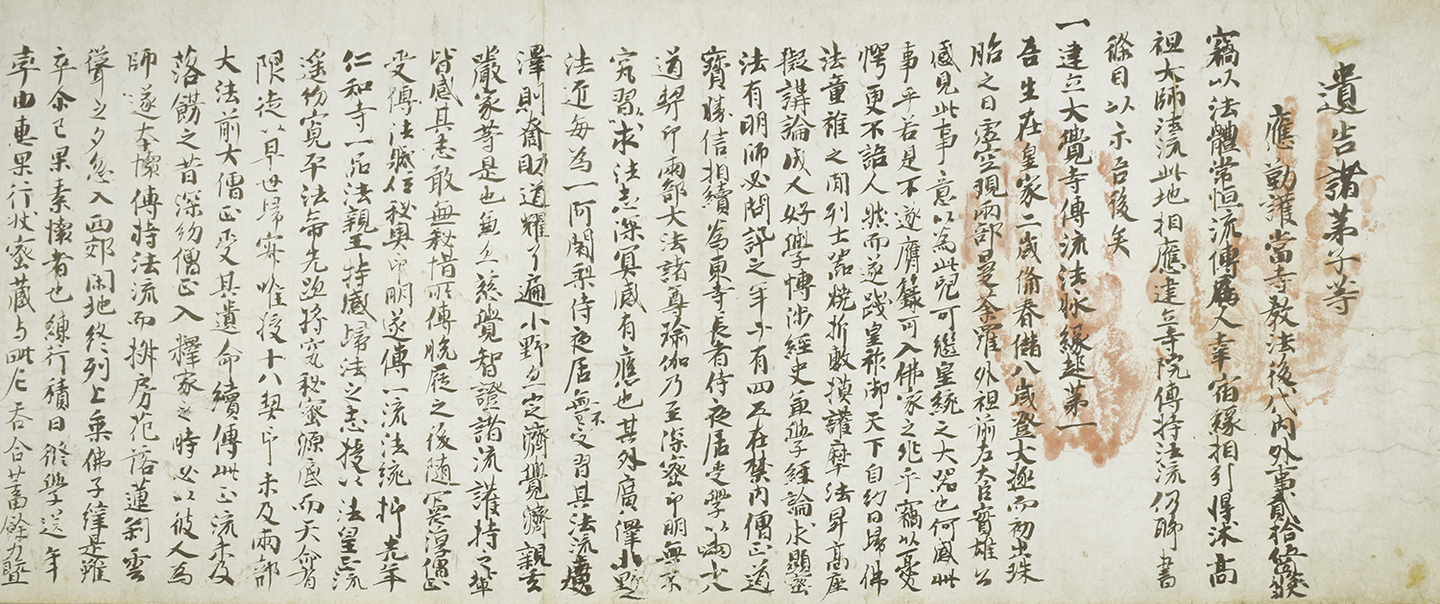 遺告諸弟子等
應勤護當寺教法後代内外事貳拾伍箇條
竊以法體常恒流傳属人幸宿縁相引得沐高
祖大師清流此地相應建立寺院傳持法流仍聊書
條目以示呂後矣
一建立大覺寺傳流法脉縁起第一
吾生在皇家二歳脩春儲八歳登大極而初出珠
胎之日虚空現兩部曼荼羅外祖前左大臣實雄公
感見此事意以為此兒可繼皇統之大器也何感此
事乎若是不遂膺籙可入佛家之兆乎竊以憂
愕更不語人然而遂踐皇祚御天下自約日歸佛
法童稚之間列土器燒折敷摸護摩法昇高座
擬講論成人好學博渉經史兼學經論求顯密
法有明師必問訊之年二十有四五在禁内僧正道
寶勝信相續為東寺長者侍夜居受學以
道契印兩部大法諸尊瑜伽乃至深密印明無不
究習求法志深冥感有應也其外廣澤小野
法匠每為一阿闍梨侍夜居無不受習其法流
澤則 助道耀了遍小野 定濟覺濟親玄
嚴家等是也兼 慈覺智證諸流護持之輩
皆感其志敢無秘惜所傳脱屣之後随 僧正
受傳法職位秘奥印明遂傳一流法統抑先年
仁和寺一品法親王持感歸法之志授以法皇正流
遥約寛平法帝先蹤将究秘密源底而天命有
限 以早世歸寂唯授十八契印未及兩部
大法前大僧正受其遺命續傳此正流未及
落餝之昔深約僧正入釋家之時必以彼人為
師遂本懷傳持法流而排房 蓮 雲
聳之夕忽入西郊閑地終列上乗佛子 是雖
卒尒已果素懷者也練行積日 學送年
幸由惠果行状密藏与此 吞合 餘力